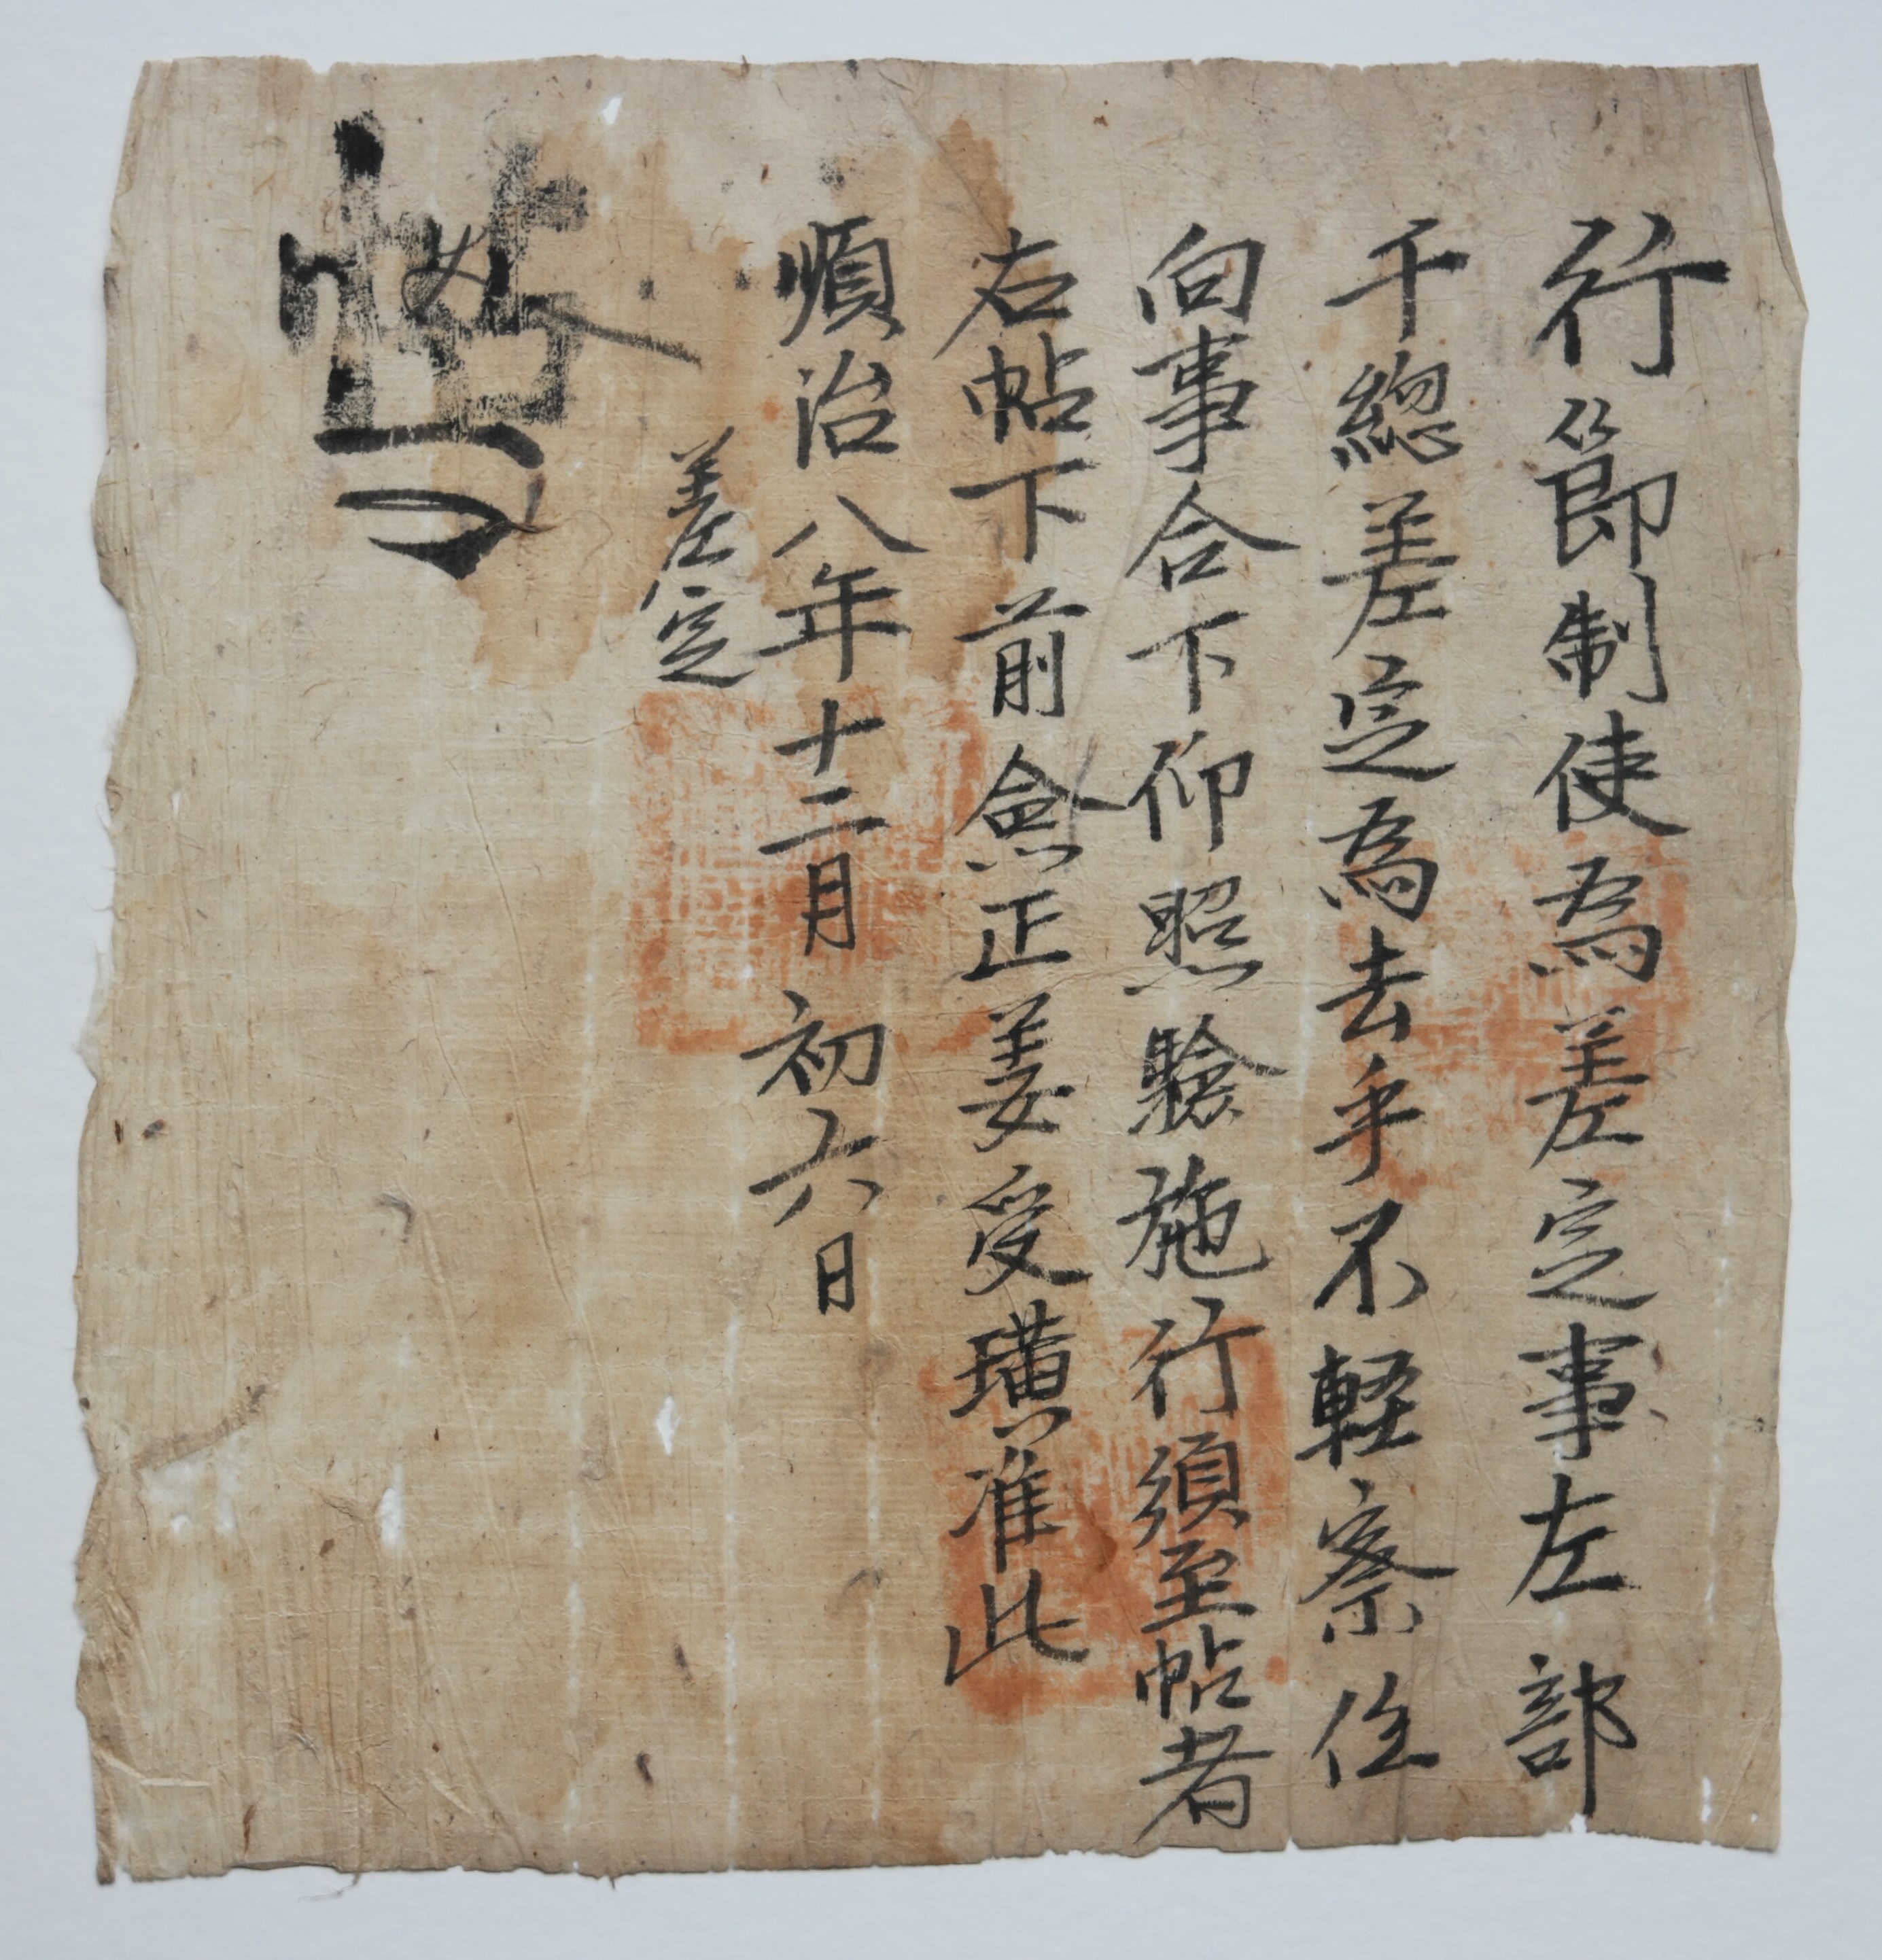 行節制使爲差定事左部
千緫差定爲去乎不軽察任
向事合下仰照驗施行須至帖者
右帖下前僉正姜受璜准此
順治八年十二月初六日
差定
帖